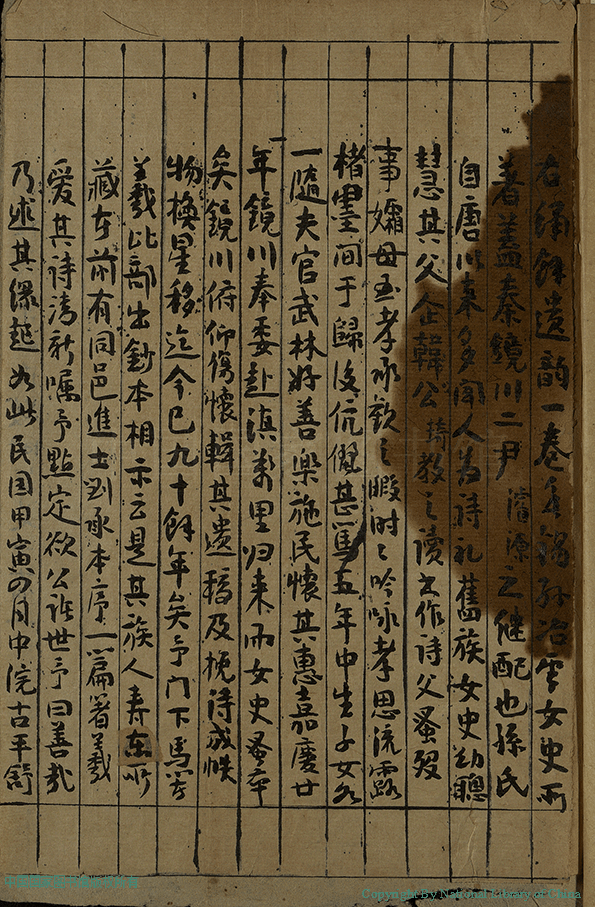 右繡餘遺韻一卷無錫孫冶雲女史所
著蓋秦鏡川二尹濬源之繼配也孫氏
自唐以來多聞人為詩禮舊族女史幼聰
慧其父企韓公琦教之讀書作詩父蚤歿
事孀母至孝承歡之暇時時吟咏孝思流露
楮墨間于歸後伉儷甚篤五年中生子女各
一隨夫官武林好善樂施民懷其惠嘉慶廿
年鏡川奉委赴滇萬里归来而女史蚤卒
矣鏡川俯仰傷懷輯其遺稿及挽詩成帙
物換星移迄今已九十餘年矣予门下馬
羲比部出鈔本相示云是其族人寿所
藏本前有同邑進士劉承本序一篇著羲
爱其詩清新嘱予點定欲公諸世予曰善哉
乃述其缘起如此民国甲寅四月中浣古平舒
Copyright By National Library of China